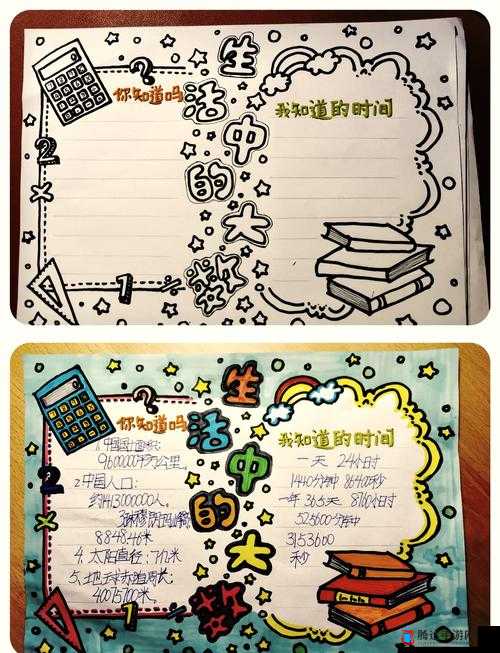 2
×
?
你知道吗
生
活
中
的
大
数
我知道的时间
1
%
2
×
?
你知道吗
1.中国国土面积:
9600000平方公里。
2.中国人口:
约1413000000人。
8848.46米
4.太阳直径:
5、地球赤道周长:
40075700米。
1
%
生
活
中
的
大
数
我知道的时间
一天 24小时
1440分钟 86400秒
一年 365天 8760小时
525600分钟
3153600
秒